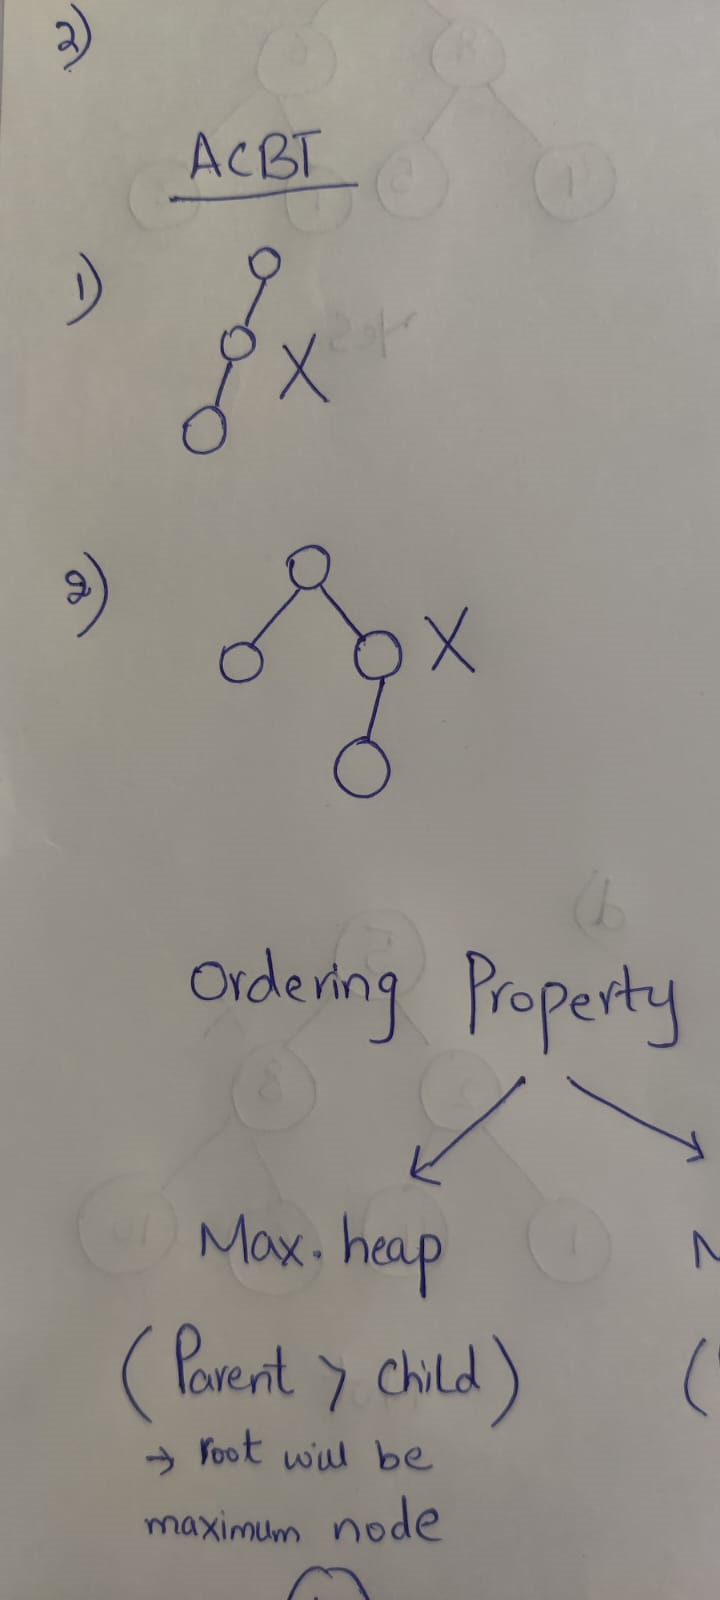 2)
ACBT
1)
X
2)
X
Ordering Property
Max. heap
(Parent > child) (
→ root will be
maximum node